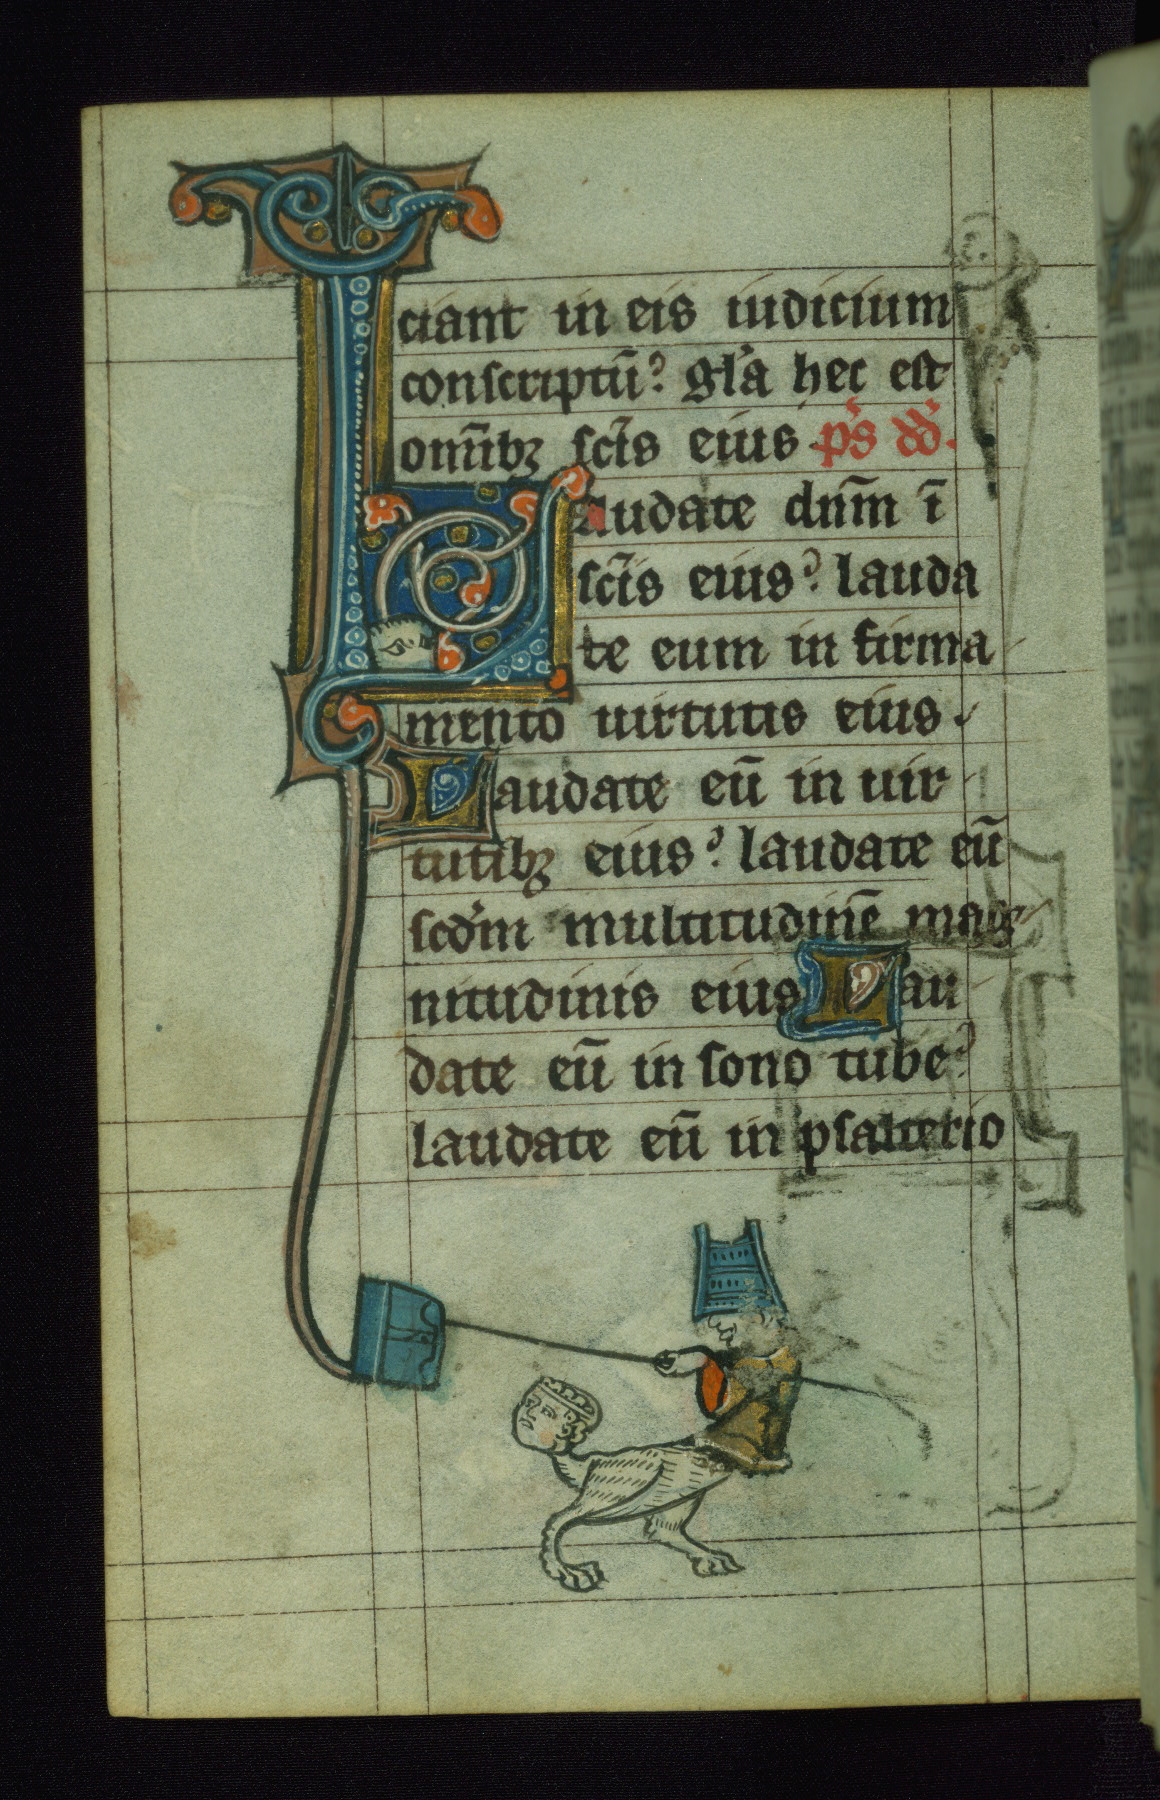 ciant in eis iudicium
conscriptū? gl'a hec est
omībꝫ scīs eius p's dd'.
Laudate dnm̄ ī
scīs eius? lauda
te eum in firma
mento uirtutis eius.
Laudate eū in uir
tutibꝫ eius? laudate eū
scd'm multitudinē mag
nitudinis eius Lau
date eū in sono tube?
laudate eū in psalterio